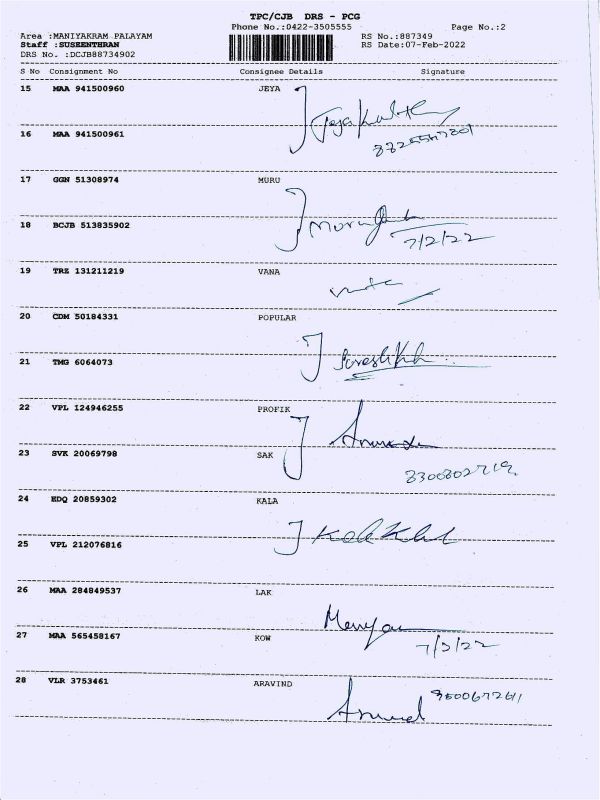 TPC/CJB DRS - PCG
Phone No.:0422-3505555 Page No.:2
Area :MANIYAKRAM PALAYAM RS No.:887349
Staff :SUSEENTHRAN RS Date:07-Feb-2022
DRS No. :DCJB88734902
S No Consignment No Consignee Details Signature
15 MAA 941500960 JEYA
16 MAA 941500961
17 GGN 51308974 MURU
18 BCJB 513835902
7/2/22
19 TRZ 131211219 VANA
20 CDM 50184331 POPULAR
21 TMG 6064073
22 VPL 124946255 PROFIK
23 SVK 20069798 SAK
24 EDQ 20859302 KALA
25 VPL 212076816
26 MAA 284849537 LAK
27 MAA 565458167 KOW
7/2/22
28 VLR 3753461 ARAVIND